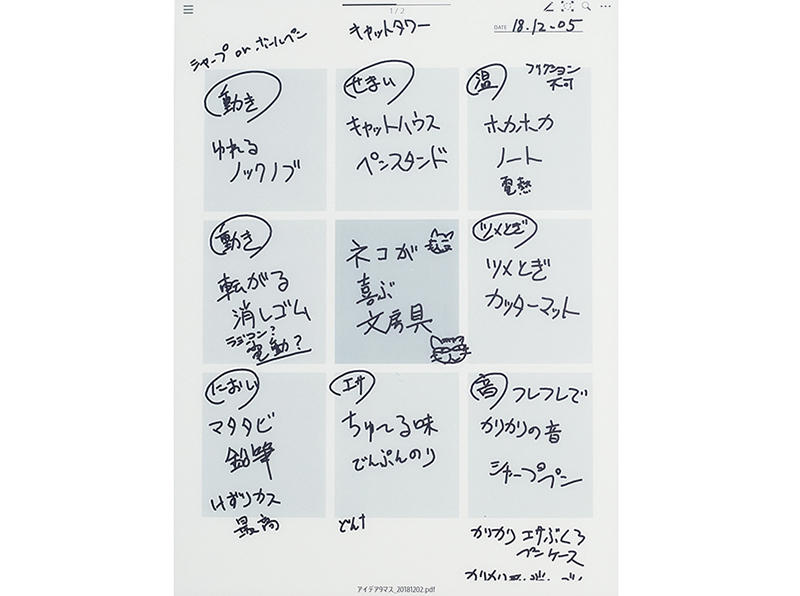 1 / 2
DATE 18.12.05
キャットタワー
シャープ or ボールペン
動き
ゆれる
ノックノブ
せまい
キャットハウス
ペンスタンド
温
フリクション
不可
ホカホカ
ノート
電熱
動き
転がる
消しゴム
ラジコン?
電動?
ネコが
喜ぶ
文房具
ツメとぎ
ツメとぎ
カッターマット
におい
マタタビ
鉛筆
けずりカス
最高
エサ
ちゅ〜る味
でんぷんのり
音 フレフレで
カリカリの音
シャープペン
カリカリ エサぶくろ
ペンケース
アイデア9マス_20181202.pdf